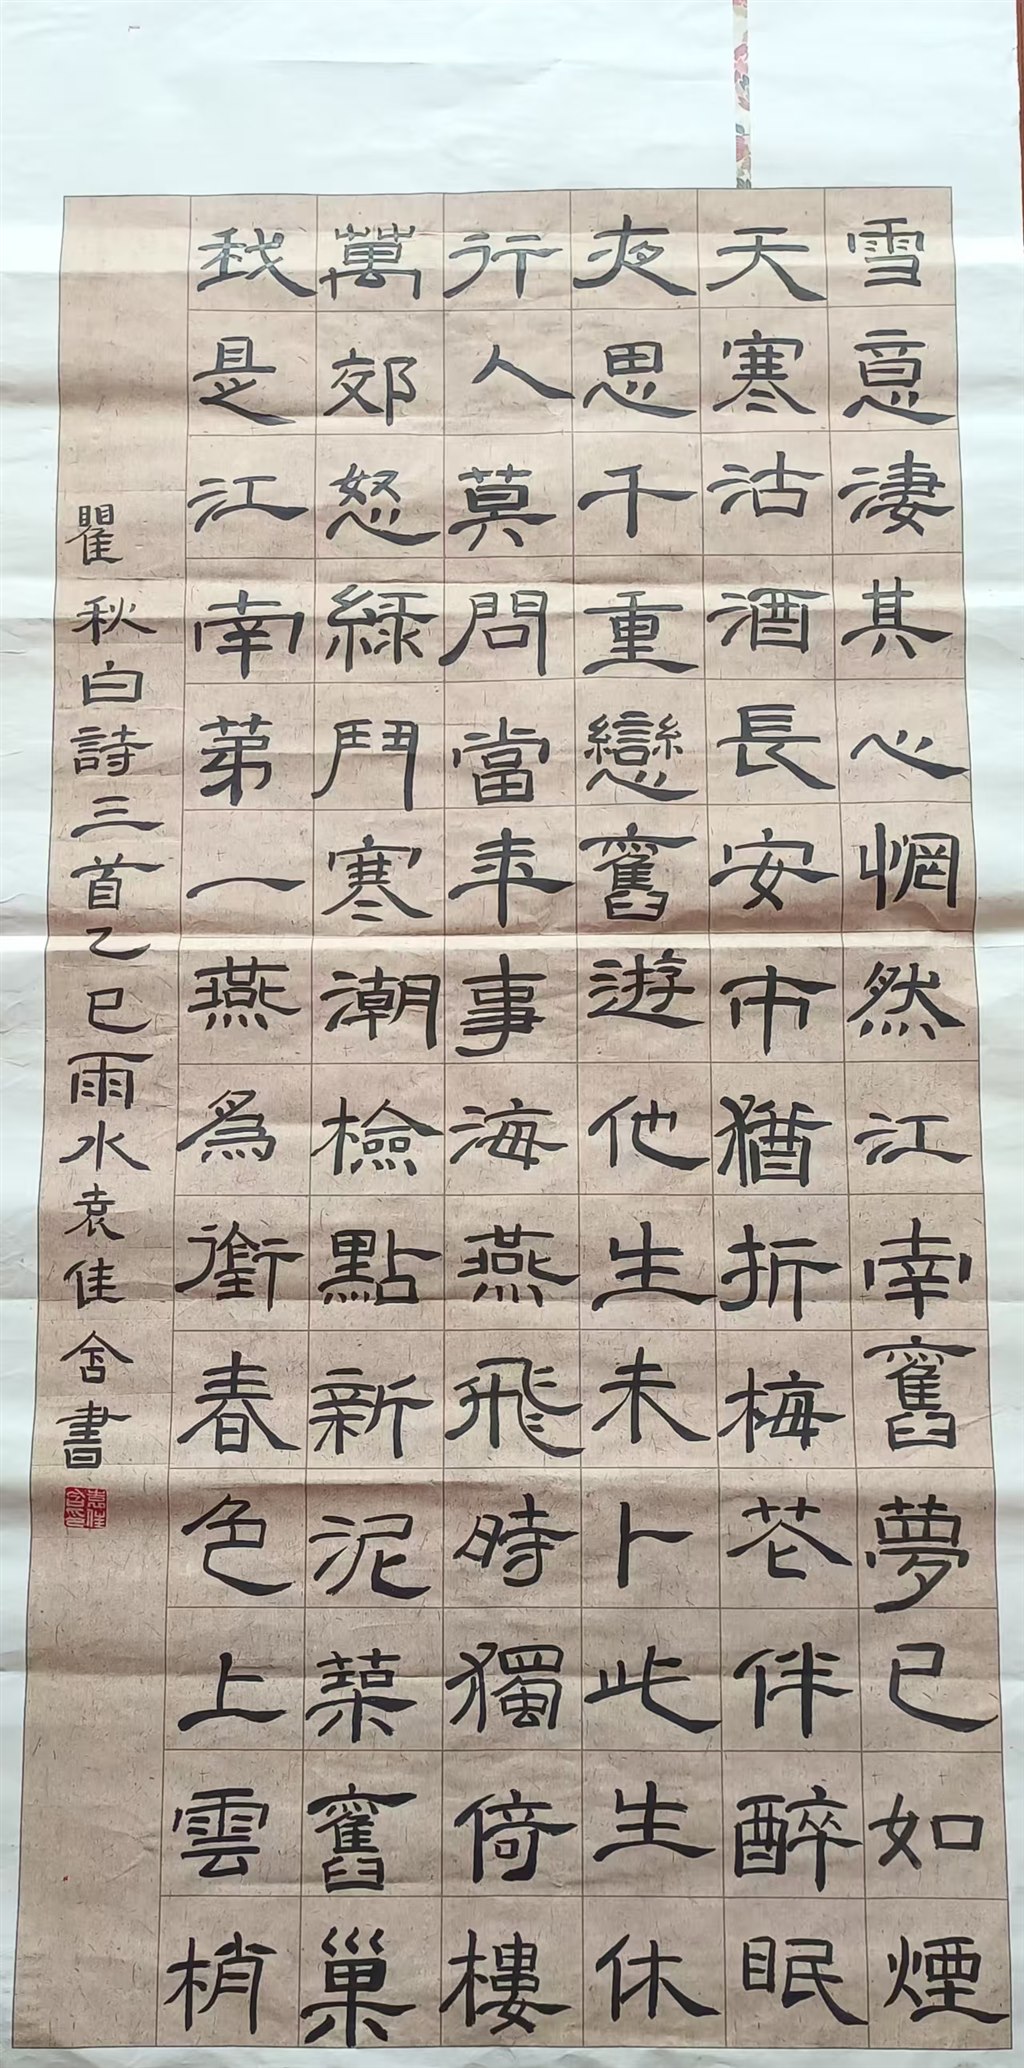 雪意淒其心惘然江南舊夢已如煙
天寒沽酒長安市猶折梅花伴醉眠
夜思千重戀舊遊他生未卜此生休
行人莫問當年事海燕飛時獨倚樓
萬郊怒綠鬥寒潮檢點新泥築舊巢
我是江南第一燕為銜春色上雲梢
瞿秋白詩三首乙巳雨水袁佳含書
袁佳含印